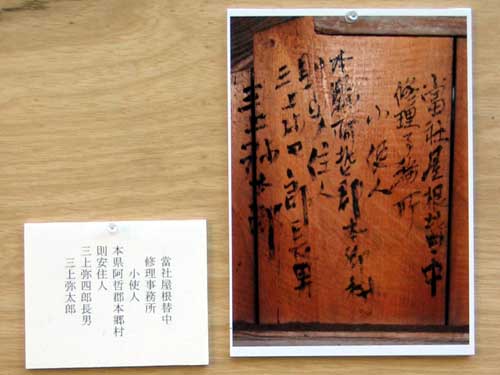 當社屋根替中
修理事務所
小使人
本縣阿哲郡本郷村
則安住人
三上弥四郎長男
三上弥太郎
當社屋根替中
修理事務所
小使人
本県阿哲郡本郷村
則安住人
三上弥四郎長男
三上弥太郎